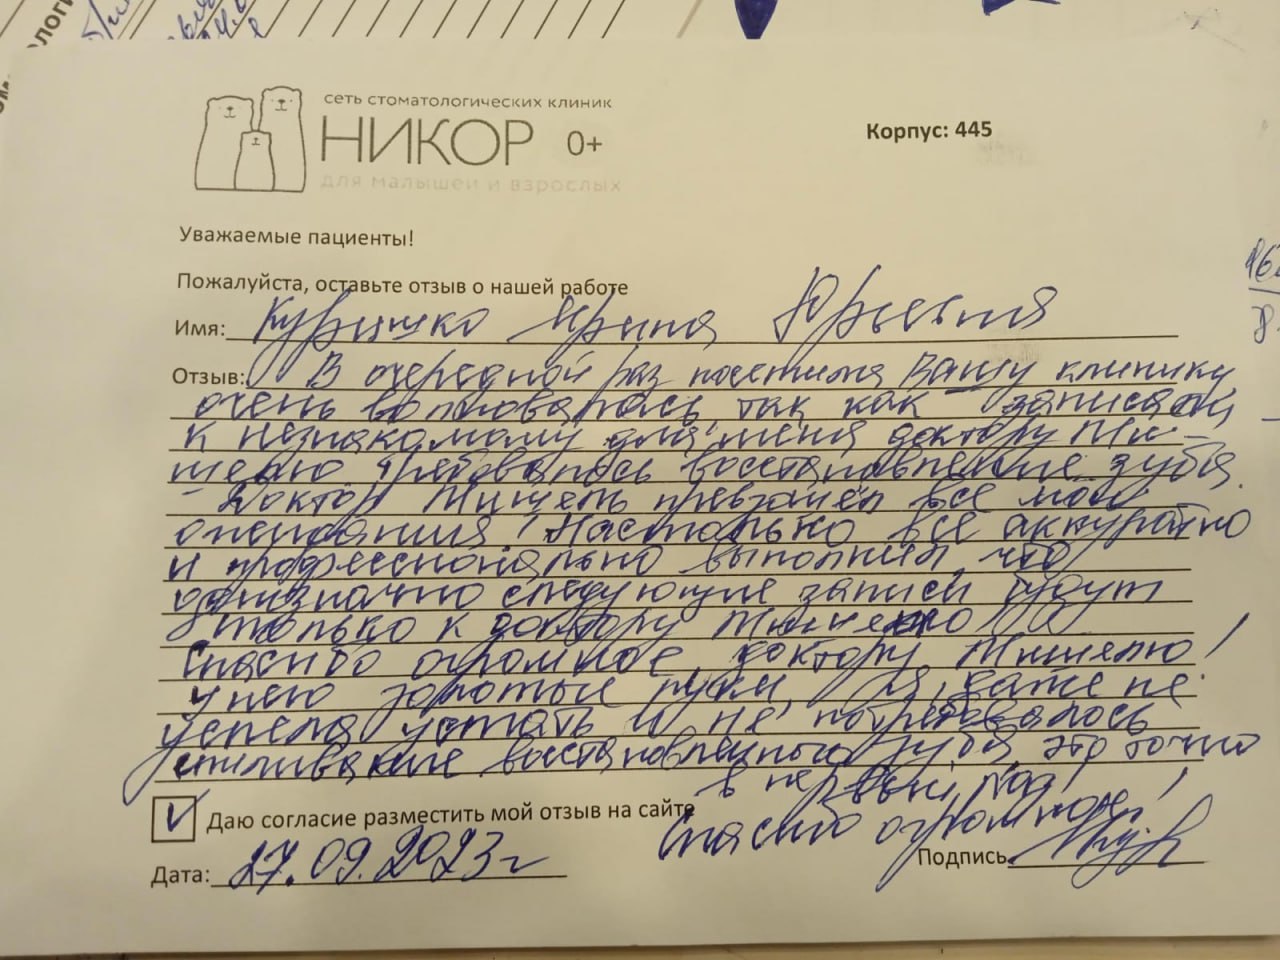 сеть стоматологических клиник
НИКОР 0+
для малышей и взрослых
Корпус: 445
Уважаемые пациенты!
Пожалуйста, оставьте отзыв о нашей работе
Имя: Куришко Ирина Юрьевна
Отзыв: В очередной раз посетила Вашу клинику,
очень волновалась, так как записали
к незнакомому для меня доктору Ми-
шелю требовалось восстановление зуба.
Доктор Мишель превзошёл все мои
ожидания! Настолько всё аккуратно
и профессионально выполнил, что
однозначно следующие записи будут
только к доктору Мишелю
Спасибо огромное доктору Мишелю!
У него золотые руки, я даже не
успела устать и не потребовалось
спиливание восстановленного зуба, это точно
в первый раз!
Спасибо огромное!
Даю согласие разместить мой отзыв на сайте
Дата: 27.09.2023г
Подпись